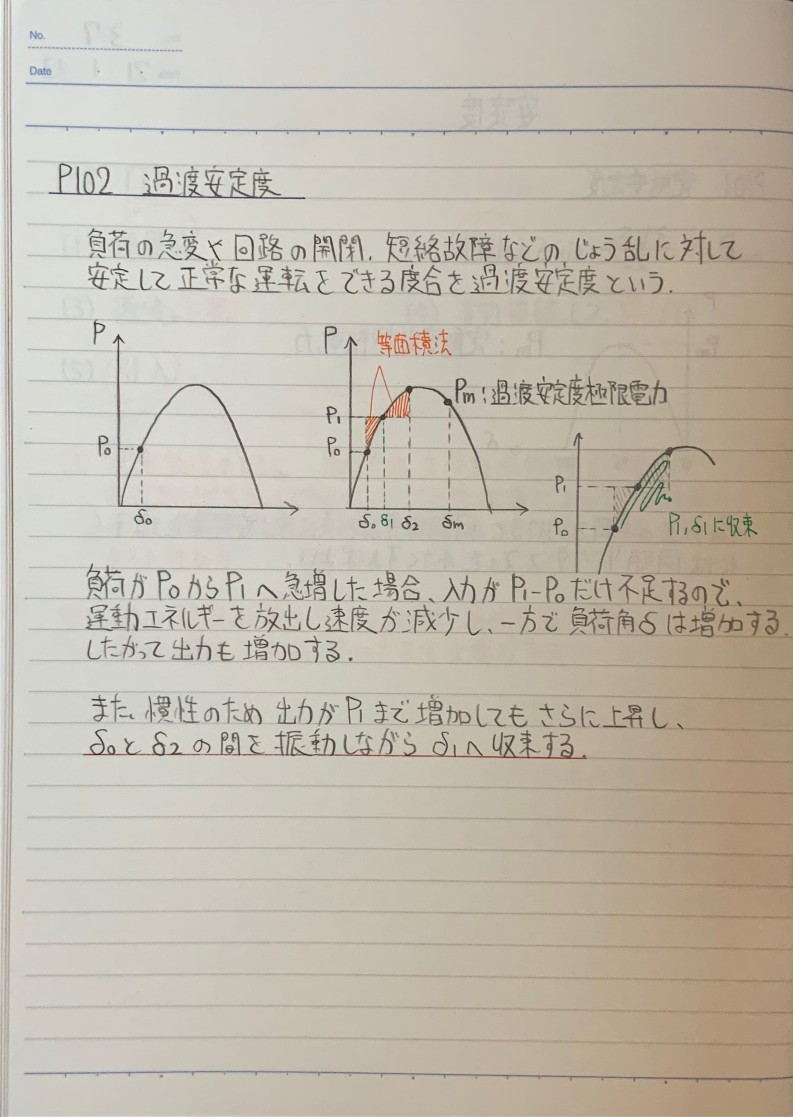 No.
Date
P102 過渡安定度
負荷の急変や回路の開閉、短絡故障などの、じょう乱に対して
安定して正常な運転をできる度合を過渡安定度という.
P
P₀
δ₀
P
等面積法
P₁
P₀
Pm:過渡安定度極限電力
δ₀ δ₁ δ₂ δm
P₁
P₀
P₁,δ₁に収束
負荷がP₀からP₁へ急増した場合、入力がP₁-P₀だけ不足するので、
運動エネルギーを放出し速度が減少し、一方で負荷角δは増加する.
したがって出力も増加する.
また、慣性のため出力がP₁まで増加してもさらに上昇し、
δ₀とδ₂の間を振動しながらδ₁へ収束する.